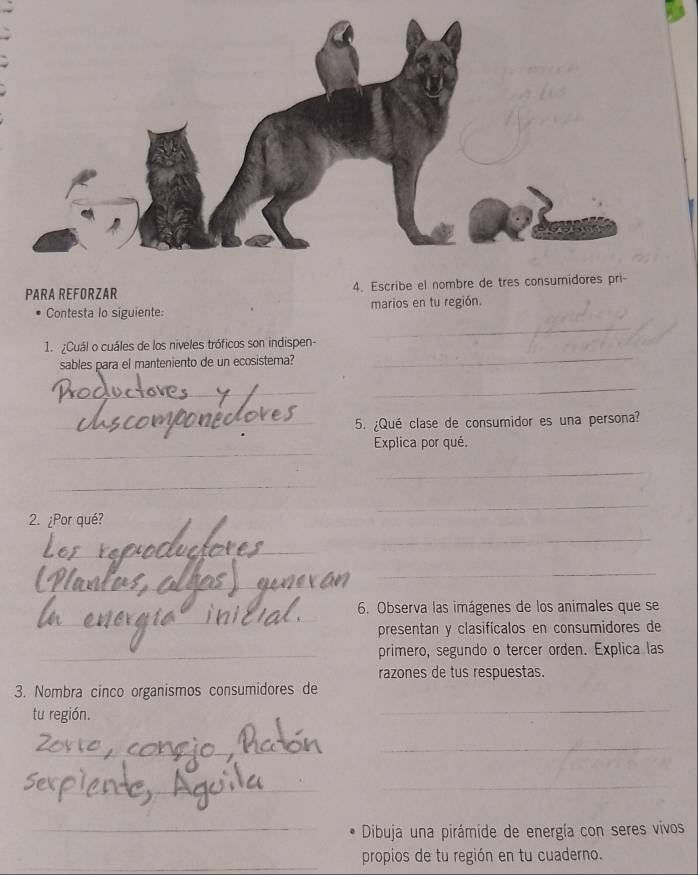 PARA REFORZAR
• Contesta lo siguiente:
1. ¿Cuál o cuáles de los niveles tróficos son indispen-
sables para el manteniento de un ecosistema?
Productores y
chscomponedores
2. ¿Por qué?
Los reproductores
(Plantas, algas) generan
la energía inicial.
3. Nombra cinco organismos consumidores de
tu región.
Zorro, conejo, Ratón
serpiente, Aguila
4. Escribe el nombre de tres consumidores pri-
marios en tu región.
5. ¿Qué clase de consumidor es una persona?
Explica por qué.
6. Observa las imágenes de los animales que se
presentan y clasifícalos en consumidores de
primero, segundo o tercer orden. Explica las
razones de tus respuestas.
• Dibuja una pirámide de energía con seres vivos
propios de tu región en tu cuaderno.